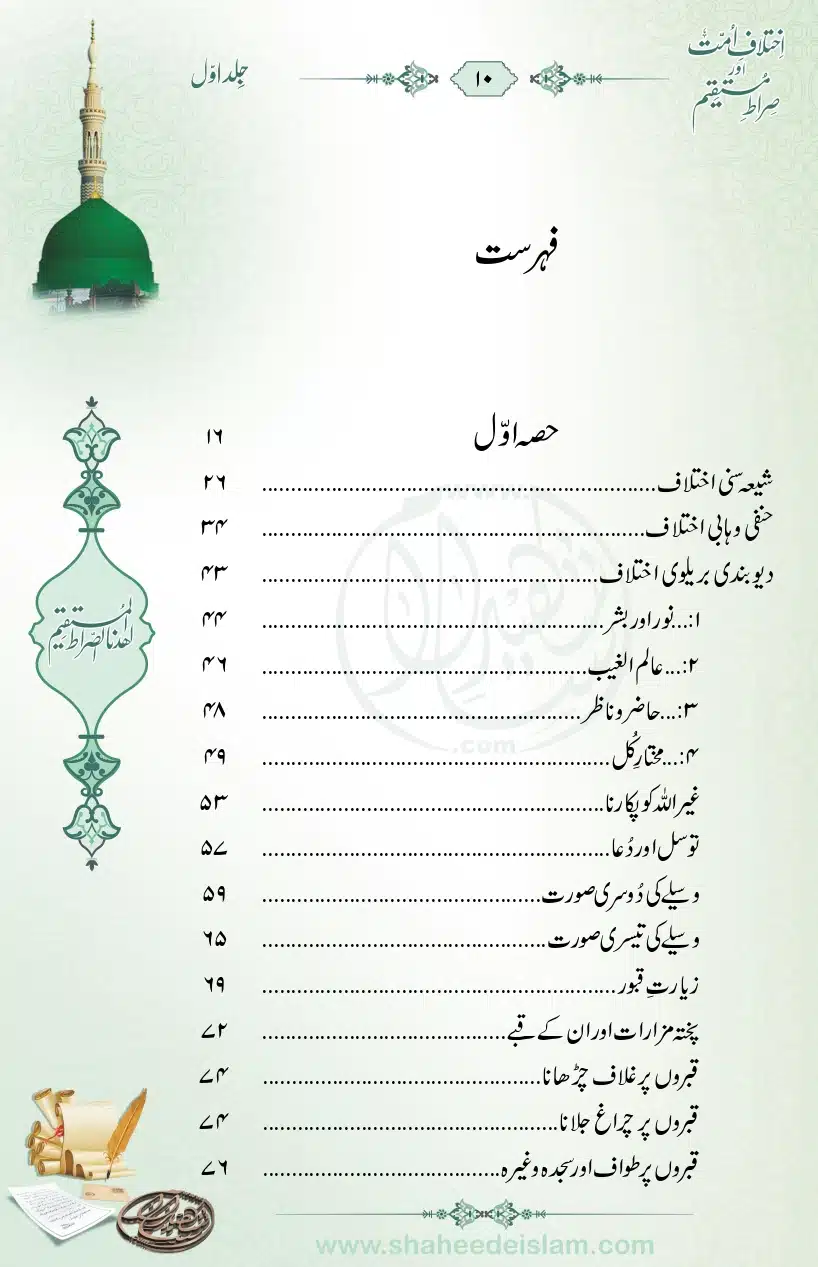 اِختلافِ اُمّت
اور
صِراطِ مُستقیم
۱۰
جِلد اوّل
فہرست
حصہ اوّل ۱۶
شیعہ سنی اختلاف ........ ۲۶
حنفی وہابی اختلاف ........ ۳۴
دیوبندی بریلوی اختلاف ........ ۴۳
۱:...نور اور بشر ........ ۴۴
۲:...عالم الغیب ........ ۴۶
۳:...حاضر و ناظر ........ ۴۸
۴:...مختارِ کُل ........ ۴۹
غیر اللہ کو پکارنا ........ ۵۳
توسل اور دُعا ........ ۵۷
وسیلے کی دُوسری صورت ........ ۵۹
وسیلے کی تیسری صورت ........ ۶۵
زیارتِ قبور ........ ۶۹
پختہ مزارات اور ان کے قبے ........ ۷۲
قبروں پر غلاف چڑھانا ........ ۷۴
قبروں پر چراغ جلانا ........ ۷۴
قبروں پر طواف اور سجدہ وغیرہ ........ ۷۶
اھدنا الصّراط المُستقیم
www.shaheedeislam.com